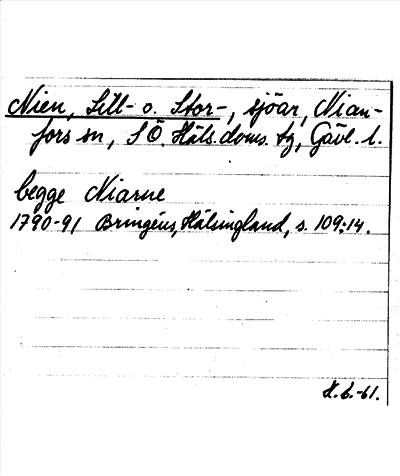 Nien, Lill- o. Stor-, sjöar, Nian-
fors sn, S Ö. Häls. doms. tg, Gävl. l.
begge Niarne
1790-91 Bringéus, Hälsingland, s. 109:14.
H. b. -61.